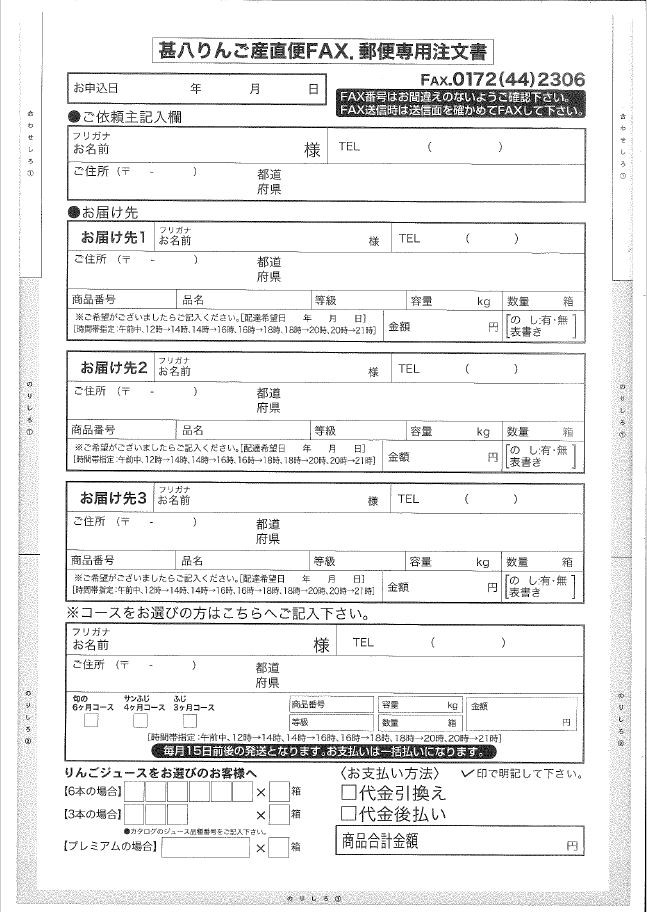 甚八りんご産直便FAX．郵便専用注文書
お申込日 年 月 日
FAX.0172(44)2306
FAX番号はお間違えのないようご確認下さい。
FAX送信時は送信面を確かめてFAXして下さい。
●ご依頼主記入欄
フリガナ
お名前 様 TEL ( )
ご住所（〒 - ） 都道
府県
●お届け先
お届け先1 フリガナ
お名前 様 TEL ( )
ご住所（〒 - ） 都道
府県
商品番号 品名 等級 容量 kg 数量 箱
※ご希望がございましたらご記入ください。[配達希望日 年 月 日]
[時間帯指定:午前中、12時→14時、14時→16時、16時→18時、18時→20時、20時→21時]
金額 円 [の し:有・無
表書き ]
お届け先2 フリガナ
お名前 様 TEL ( )
ご住所（〒 - ） 都道
府県
商品番号 品名 等級 容量 kg 数量 箱
※ご希望がございましたらご記入ください。[配達希望日 年 月 日]
[時間帯指定:午前中、12時→14時、14時→16時、16時→18時、18時→20時、20時→21時]
金額 円 [の し:有・無
表書き ]
お届け先3 フリガナ
お名前 様 TEL ( )
ご住所（〒 - ） 都道
府県
商品番号 品名 等級 容量 kg 数量 箱
※ご希望がございましたらご記入ください。[配達希望日 年 月 日]
[時間帯指定:午前中、12時→14時、14時→16時、16時→18時、18時→20時、20時→21時]
金額 円 [の し:有・無
表書き ]
※コースをお選びの方はこちらへご記入下さい。
フリガナ
お名前 様 TEL ( )
ご住所（〒 - ） 都道
府県
旬の サンふじ ふじ
6ヶ月コース 4ヶ月コース 3ヶ月コース
商品番号 容量 kg 金額 円
等級 数量 箱
[時間帯指定:午前中、12時→14時、14時→16時、16時→18時、18時→20時、20時→21時]
毎月15日前後の発送となります。お支払いは一括払いになります。
りんごジュースをお選びのお客様へ
【6本の場合】 × 箱
【3本の場合】 × 箱
●カタログのジュース品種番号をご記入下さい。
【プレミアムの場合】 × 箱
〈お支払い方法〉 ✓印で明記して下さい。
□代金引換え
□代金後払い
商品合計金額 円
合わせしろ①
合わせしろ①
のりしろ①
のりしろ①
のりしろ②
のりしろ②
のりしろ③